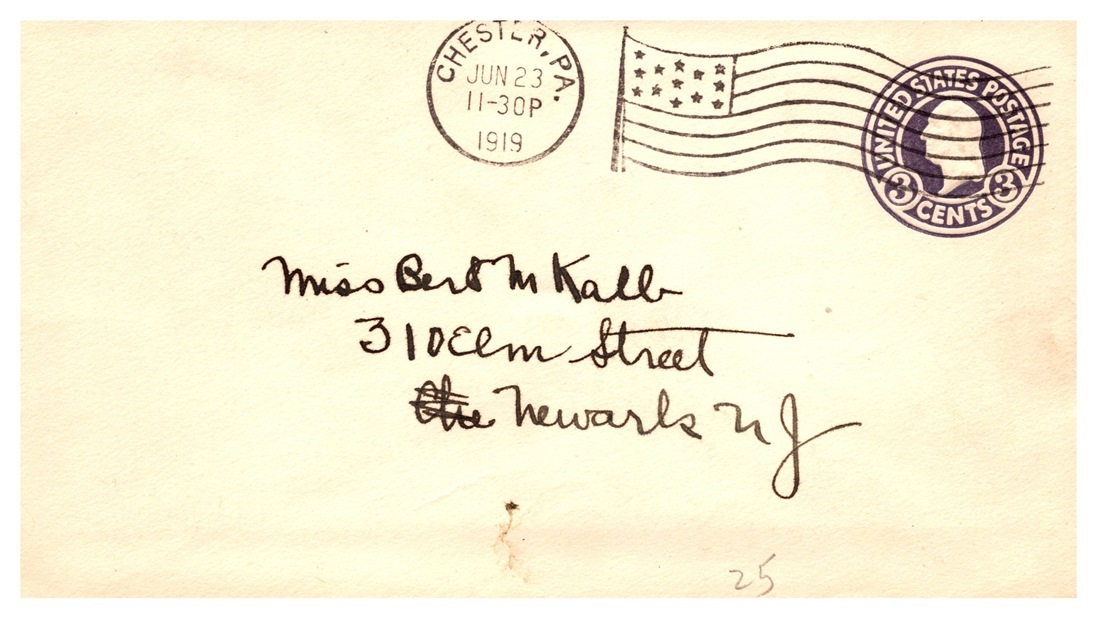 CHESTER, PA.
JUN 23
11-30P
1919
UNITED STATES POSTAGE
3 CENTS 3
Miss Bert M Kalb
310 Elm Street
Newark N J
25